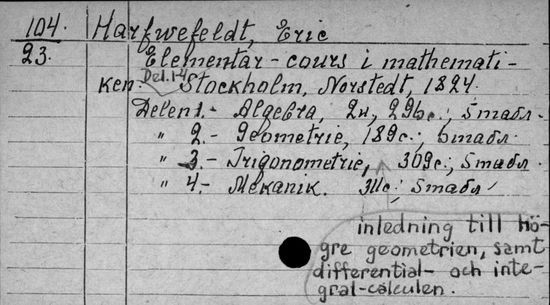 104. Harfwefeldt, Eric
23. Elementär-cours i mathemati-
ken. Del. 1-4. Stockholm, Norstedt, 1824.
Delen 1.- Algebra, 2н, 296с.; 5табл.
" 2.- Geometrie, 189с.; 6табл.
" 3.- Trigonometrie, 309с.; 5табл.
" 4.- Mekanik. 311с; 5табл.
inledning till hö-
gre geometrien, samt
differential- och inte-
gral-calculen.